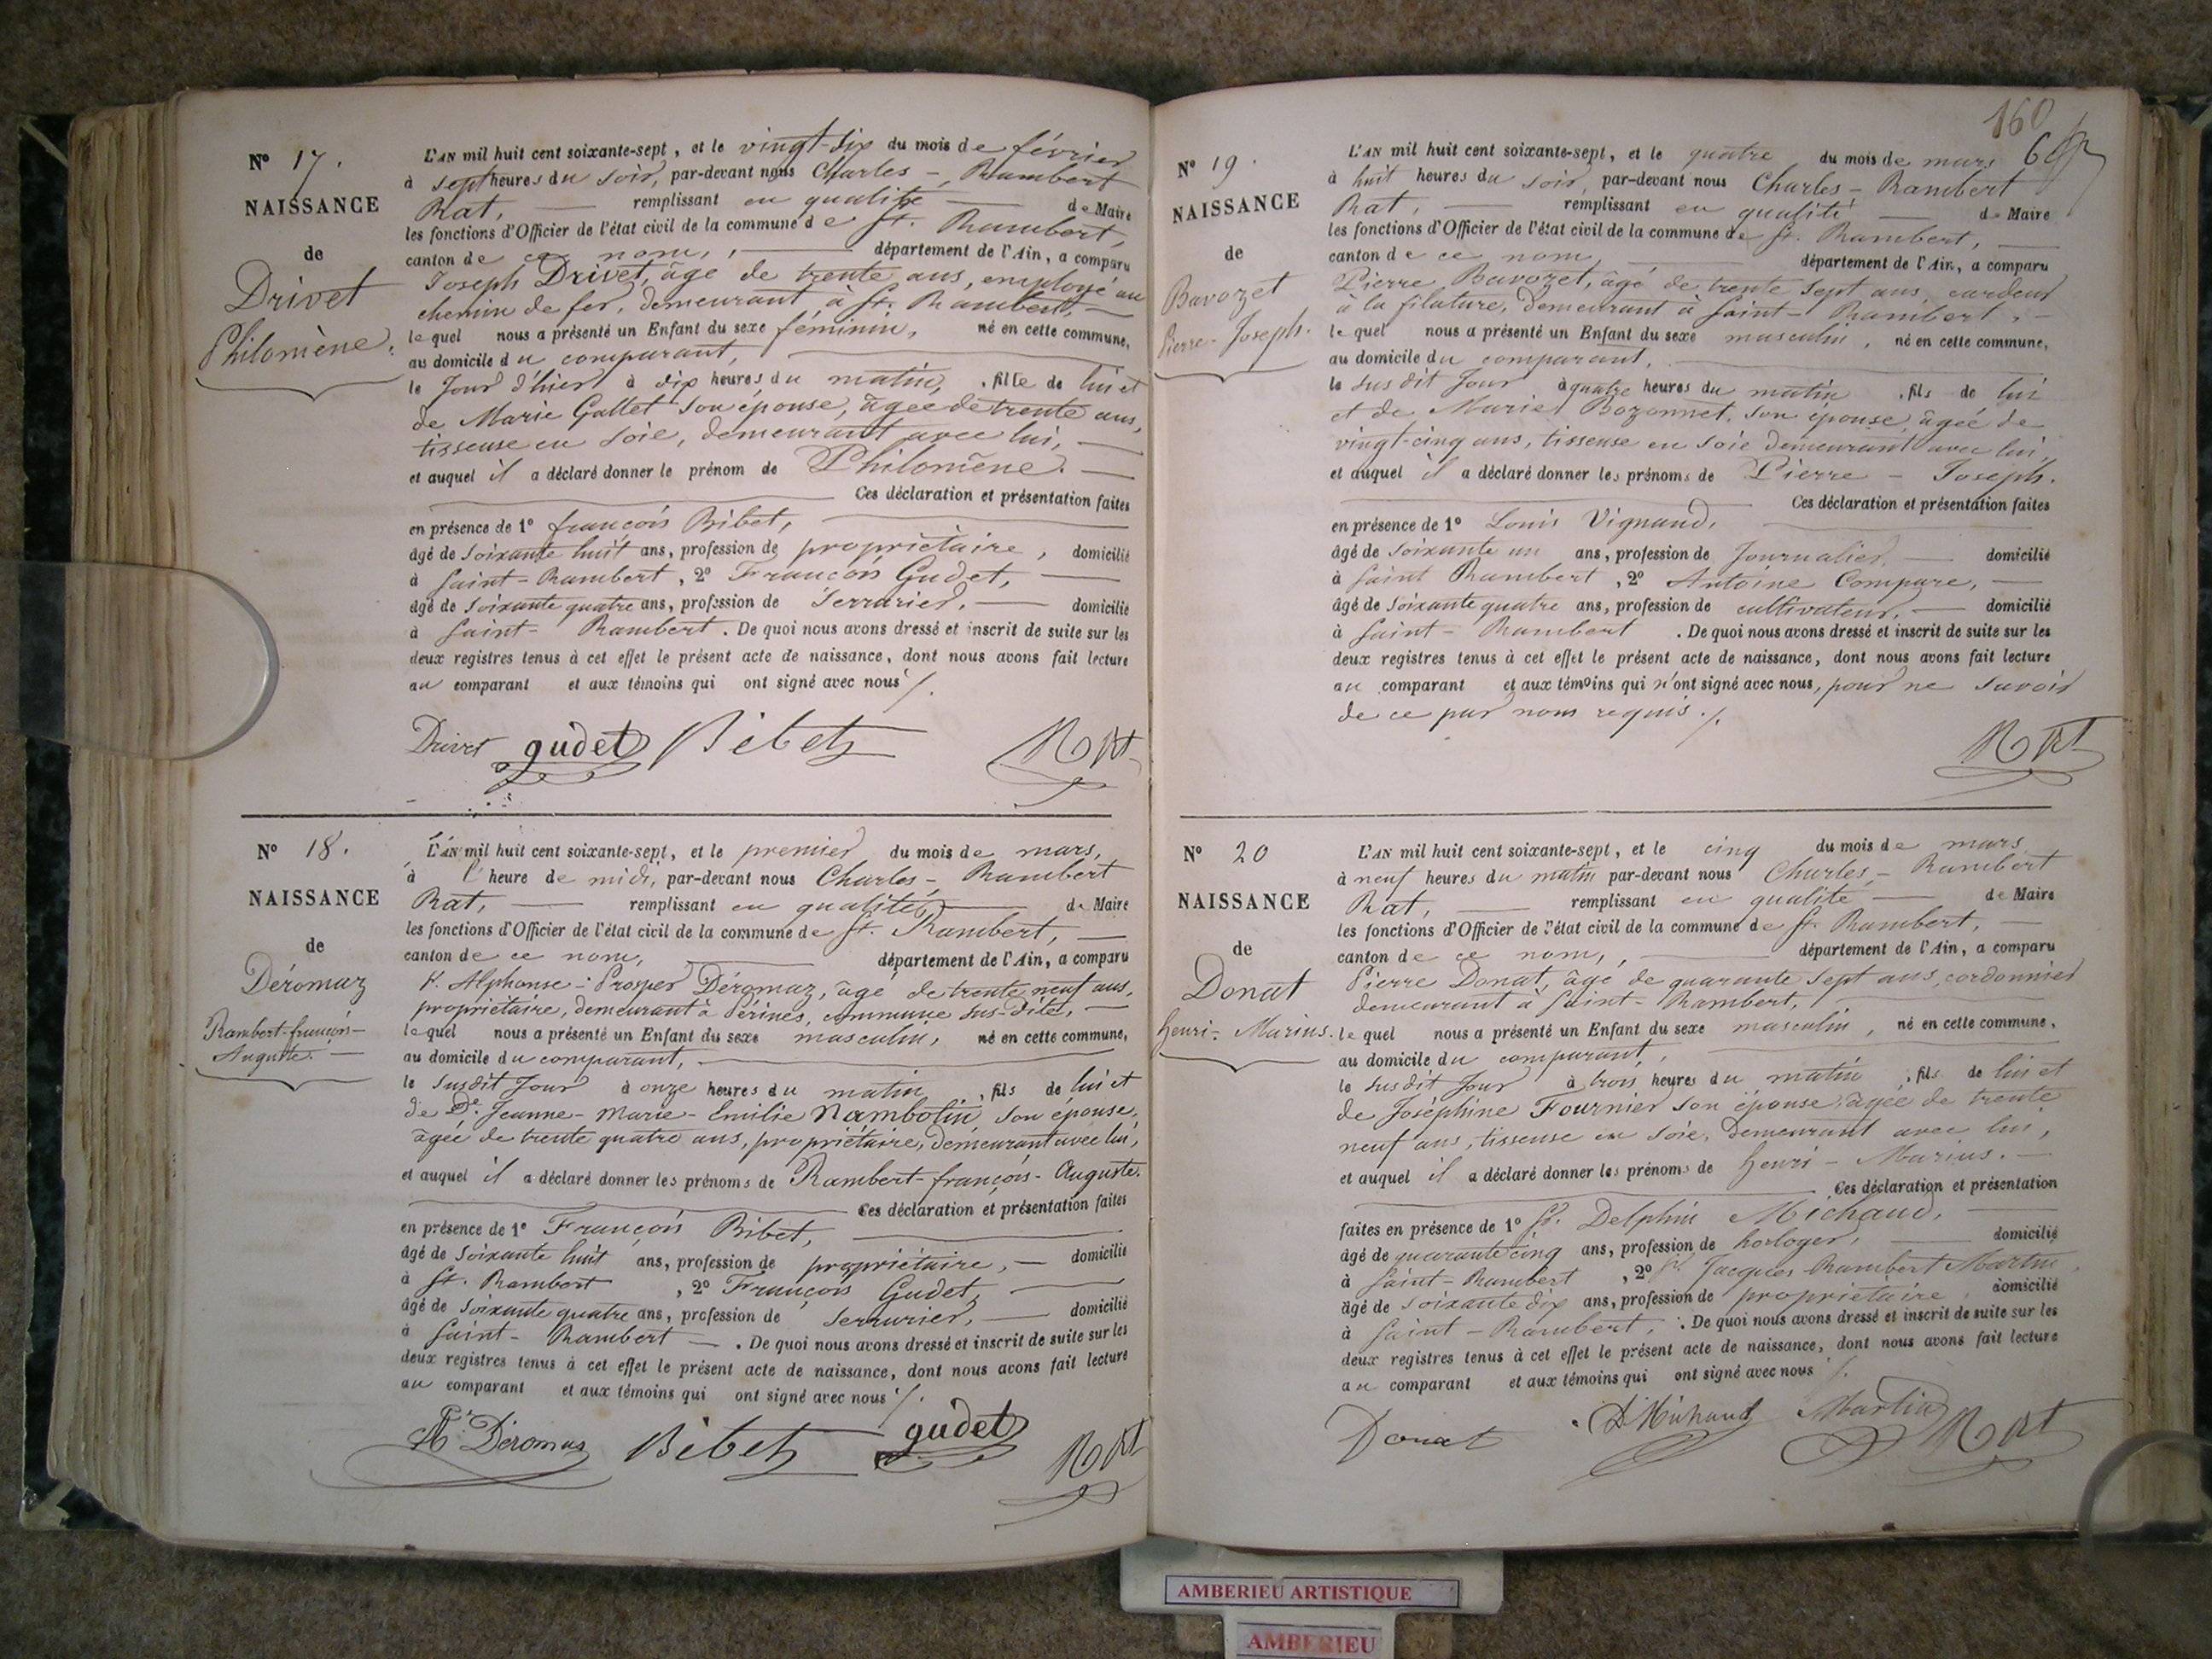 N° 17.
NAISSANCE
de
Drivet
Philomène.
L'AN mil huit cent soixante-sept, et le vingt-six du mois de février
à sept heures du soir, par-devant nous Charles - Rambert
Rat, remplissant en qualité de Maire
les fonctions d'Officier de l'état civil de la commune de St. Rambert,
canton de ce nom, département de l'Ain, a comparu
Joseph Drivet, âgé de trente ans, employé au
chemin de fer, demeurant à St. Rambert,
lequel nous a présenté un Enfant du sexe féminin, né en cette commune,
au domicile du comparant,
le Jour d'hier à dix heures du matin, fille de lui et
de Marie Gallet son épouse, âgée de trente ans,
tisseuse en soie, demeurant avec lui,
et auquel il a déclaré donner le prénom de Philomène.
Ces déclaration et présentation faites
en présence de 1° françois Bibet,
âgé de soixante huit ans, profession de propriétaire, domicilié
à Saint-Rambert, 2° François Gudet,
âgé de soixante quatre ans, profession de Serrurier, domicilié
à Saint-Rambert. De quoi nous avons dressé et inscrit de suite sur les
deux registres tenus à cet effet le présent acte de naissance, dont nous avons fait lecture
au comparant et aux témoins qui ont signé avec nous ./.
Drivet gudet Bibet R Rat
N° 18.
NAISSANCE
de
Déromaz
Rambert-françois-
Auguste.
L'AN mil huit cent soixante-sept, et le premier du mois de mars,
à l'heure de midi, par-devant nous Charles - Rambert
Rat, remplissant en qualité de Maire
les fonctions d'Officier de l'état civil de la commune de St. Rambert,
canton de ce nom, département de l'Ain, a comparu
Alphonse-Prosper Déromaz, âgé de trente neuf ans,
propriétaire, demeurant à Sérines, commune sus-dite,
lequel nous a présenté un Enfant du sexe masculin, né en cette commune,
au domicile du comparant,
le susdit Jour à onze heures du matin, fils de lui et
de De. Jeanne-Marie-Emilie Nambotin son épouse,
âgée de trente quatre ans, propriétaire, demeurant avec lui,
et auquel il a déclaré donner les prénoms de Rambert-françois-Auguste.
Ces déclaration et présentation faites
en présence de 1° François Bibet,
âgé de soixante huit ans, profession de propriétaire, domicilié
à St. Rambert, 2° François Gudet,
âgé de soixante quatre ans, profession de Serrurier, domicilié
à Saint-Rambert. De quoi nous avons dressé et inscrit de suite sur les
deux registres tenus à cet effet le présent acte de naissance, dont nous avons fait lecture
au comparant et aux témoins qui ont signé avec nous ./.
Déromaz Bibet gudet R Rat
160
N° 19.
NAISSANCE
de
Bavozet
Pierre-Joseph.
L'AN mil huit cent soixante-sept, et le quatre du mois de mars
à huit heures du soir, par-devant nous Charles - Rambert
Rat, remplissant en qualité de Maire
les fonctions d'Officier de l'état civil de la commune de St. Rambert,
canton de ce nom, département de l'Ain, a comparu
Pierre Bavozet, âgé de trente sept ans, cardeur
à la filature, demeurant à Saint-Rambert,
lequel nous a présenté un Enfant du sexe masculin, né en cette commune,
au domicile du comparant,
le sus dit Jour à quatre heures du matin, fils de lui
et de Marie Bozonnet, son épouse, âgée de
vingt-cinq ans, tisseuse en soie demeurant avec lui,
et auquel il a déclaré donner les prénoms de Pierre - Joseph.
Ces déclaration et présentation faites
en présence de 1° Louis Vignand,
âgé de soixante un ans, profession de Journalier, domicilié
à Saint Rambert, 2° Antoine Compare,
âgé de soixante quatre ans, profession de cultivateur, domicilié
à Saint-Rambert. De quoi nous avons dressé et inscrit de suite sur les
deux registres tenus à cet effet le présent acte de naissance, dont nous avons fait lecture
au comparant et aux témoins qui n'ont signé avec nous, pour ne savoir
de ce par nous requis ./.
R Rat
N° 20
NAISSANCE
de
Donat
henri-Marius.
L'AN mil huit cent soixante-sept, et le cinq du mois de mars
à neuf heures du matin par-devant nous Charles - Rambert
Rat, remplissant en qualité de Maire
les fonctions d'Officier de l'état civil de la commune de St. Rambert,
canton de ce nom, département de l'Ain, a comparu
Pierre Donat, âgé de quarante sept ans, cordonnier
demeurant à Saint-Rambert,
lequel nous a présenté un Enfant du sexe masculin, né en cette commune,
au domicile du comparant,
le susdit Jour à trois heures du matin, fils de lui et
de Joséphine Fournier son épouse âgée de trente
neuf ans, tisseuse en soie, demeurant avec lui,
et auquel il a déclaré donner les prénoms de henri - Marius.
Ces déclaration et présentation
faites en présence de 1° Delphin Michaud,
âgé de quarante cinq ans, profession de horloger, domicilié
à Saint-Rambert, 2° Jacques Rambert Martin,
âgé de soixante dix ans, profession de propriétaire, domicilié
à Saint-Rambert. De quoi nous avons dressé et inscrit de suite sur les
deux registres tenus à cet effet le présent acte de naissance, dont nous avons fait lecture
au comparant et aux témoins qui ont signé avec nous ./.
Donat D Michaud Martin R Rat
AMBERIEU ARTISTIQUE
AMBERIEU